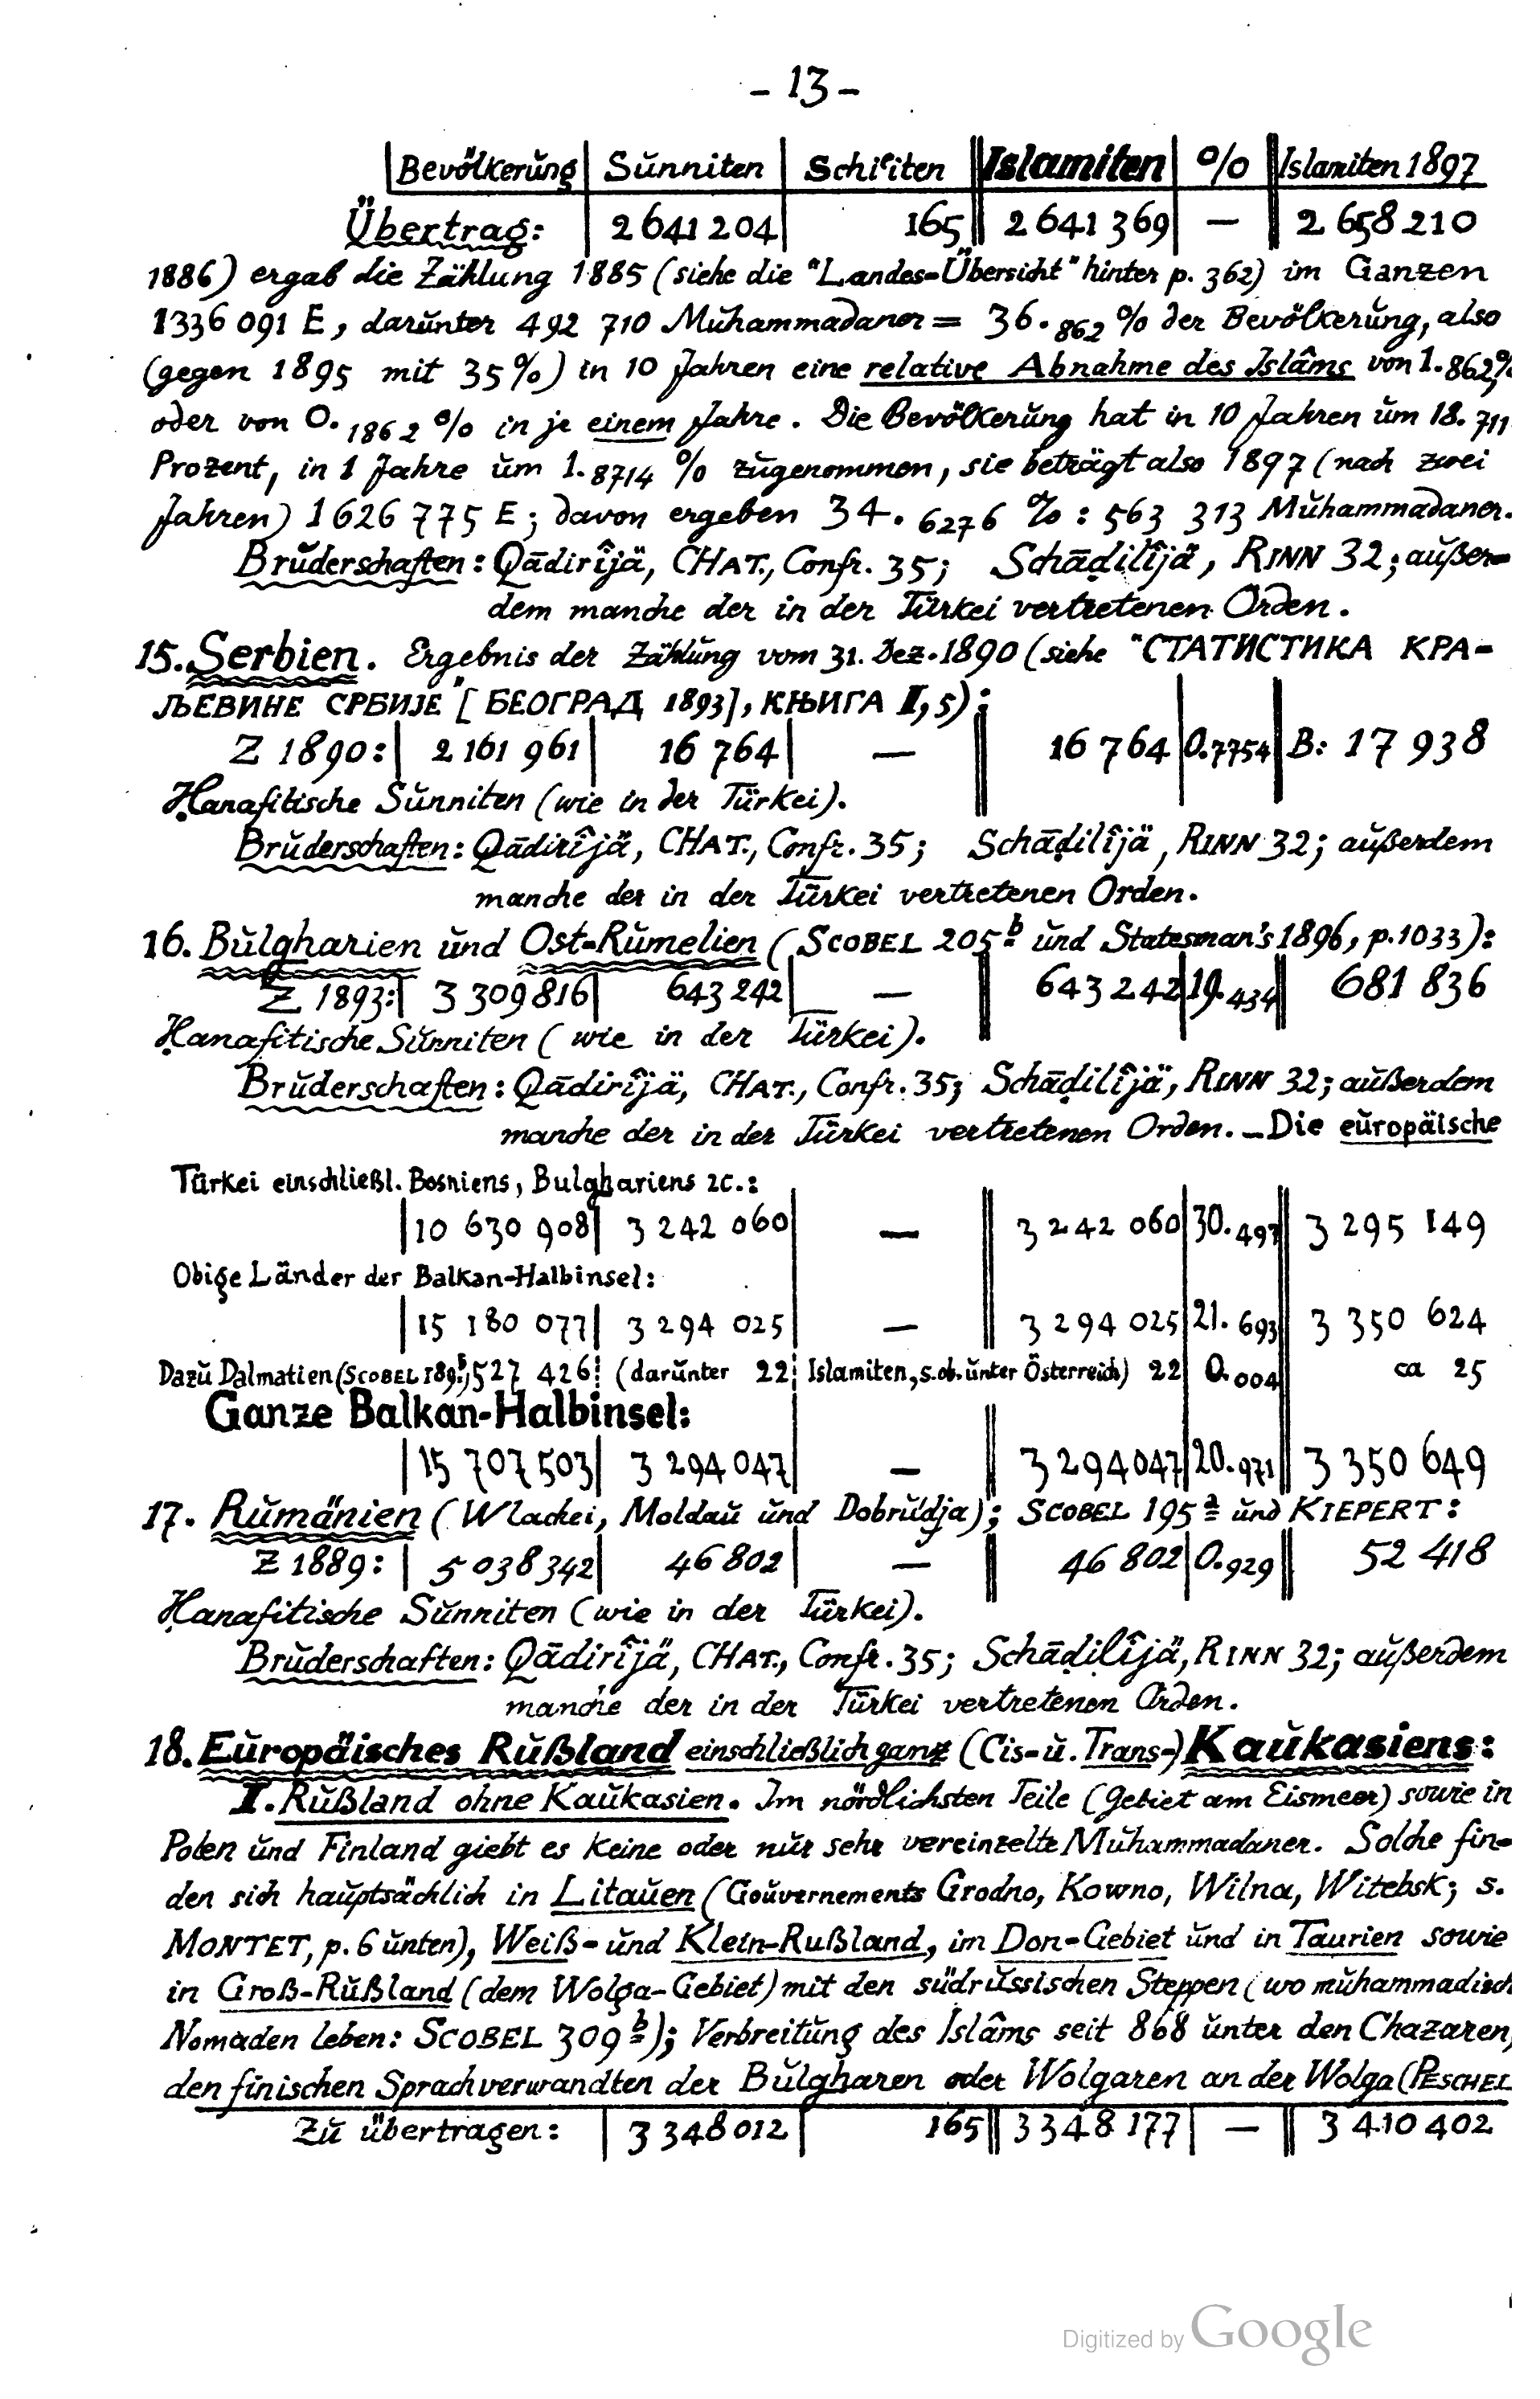 – 13 –
Bevölkerung | Sunniten | Schiʿiten || Islamiten | % || Islamiten 1897
Übertrag: | 2 641 204 | 165 || 2 641 369 | — || 2 658 210
1886) ergab die Zählung 1885 (siehe die "Landes=Übersicht" hinter p. 362) im Ganzen
1 336 091 E, darunter 492 710 Muhammadaner = 36.862 % der Bevölkerung, also
(gegen 1895 mit 35 %) in 10 Jahren eine relative Abnahme des Islâms von 1.862 %
oder von 0.1862 % in je einem Jahre. Die Bevölkerung hat in 10 Jahren um 18.711
Prozent, in 1 Jahre um 1.8714 % zugenommen, sie beträgt also 1897 (nach zwei
Jahren) 1 626 775 E; davon ergeben 34.6276 %: 563 313 Muhammadaner.
Bruderschaften: Qādirîjä, CHAT., Confr. 35; Schāḏilîjä, RINN 32; außer=
dem manche der in der Türkei vertretenen Orden.
15. Serbien. Ergebnis der Zählung vom 31. Dez. 1890 (siehe "СТАТИСТИКА КРА-
ЉЕВИНЕ СРБИЈЕ" [БЕОГРАД 1893], КЊИГА II, 5):
Z 1890: | 2 161 961 | 16 764 | — || 16 764 | 0.7754 | B: 17 938
Ḥanafitische Sunniten (wie in der Türkei).
Bruderschaften: Qādirîjä, CHAT., Confr. 35; Schāḏilîjä, RINN 32; außerdem
manche der in der Türkei vertretenen Orden.
16. Bulgharien und Ost=Rumelien (SCOBEL 205b und Statesman's 1896, p. 1033):
Z 1893: | 3 309 816 | 643 242 | — || 643 242 | 19.434 || 681 836
Ḥanafitische Sunniten (wie in der Türkei).
Bruderschaften: Qādirîjä, CHAT., Confr. 35; Schāḏilîjä, RINN 32; außerdem
manche der in der Türkei vertretenen Orden. — Die europäische
Türkei einschließl. Bosniens, Bulghariens 2c.:
| 10 630 908 | 3 242 060 | — || 3 242 060 | 30.497 || 3 295 149
Obige Länder der Balkan-Halbinsel:
| 15 180 077 | 3 294 025 | — || 3 294 025 | 21.693 || 3 350 624
Dazu Dalmatien (SCOBEL 189b), 527 426 (darunter 22 Islamiten, s. ob. unter Österreich) 22 | 0.004 || ca 25
Ganze Balkan-Halbinsel:
| 15 707 503 | 3 294 047 | — || 3 294 047 | 20.971 || 3 350 649
17. Rumänien (Wlachei, Moldau und Dobrudja); SCOBEL 195a und KIEPERT:
Z 1889: | 5 038 342 | 46 802 | — || 46 802 | 0.929 || 52 418
Ḥanafitische Sunniten (wie in der Türkei).
Bruderschaften: Qādirîjä, CHAT., Confr. 35; Schāḏilîjä, RINN 32; außerdem
manche der in der Türkei vertretenen Orden.
18. Europäisches Rußland einschließlich ganz (Cis- u. Trans-) Kaukasiens:
I. Rußland ohne Kaukasien. Im nördlichsten Teile (Gebiet am Eismeer) sowie in
Polen und Finland giebt es keine oder nur sehr vereinzelte Muhammadaner. Solche fin=
den sich hauptsächlich in Litauen (Gouvernements Grodno, Kowno, Wilna, Witebsk; s.
MONTET, p. 6 unten), Weiß- und Klein-Rußland, im Don-Gebiet und in Taurien sowie
in Groß-Rußland (dem Wolga-Gebiet) mit den südrussischen Steppen (wo muhammadisch
Nomaden leben: SCOBEL 309b); Verbreitung des Islâms seit 868 unter den Chazaren,
den finischen Sprachverwandten der Bulgharen oder Wolgaren an der Wolga (PESCHEL
Zu übertragen: | 3 348 012 | 165 || 3 348 177 | — || 3 410 402
Digitized by Google